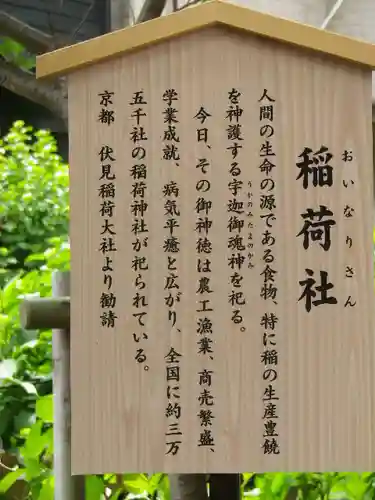 稲荷社
おいなりさん
人間の生命の源である食物、特に稲の生産豊饒
を神護する宇迦御魂神を祀る。
うかのみたまのかみ
今日、その御神徳は農工漁業、商売繁盛、
学業成就、病気平癒と広がり、全国に約三万
五千社の稲荷神社が祀られている。
京都　伏見稲荷大社より勧請